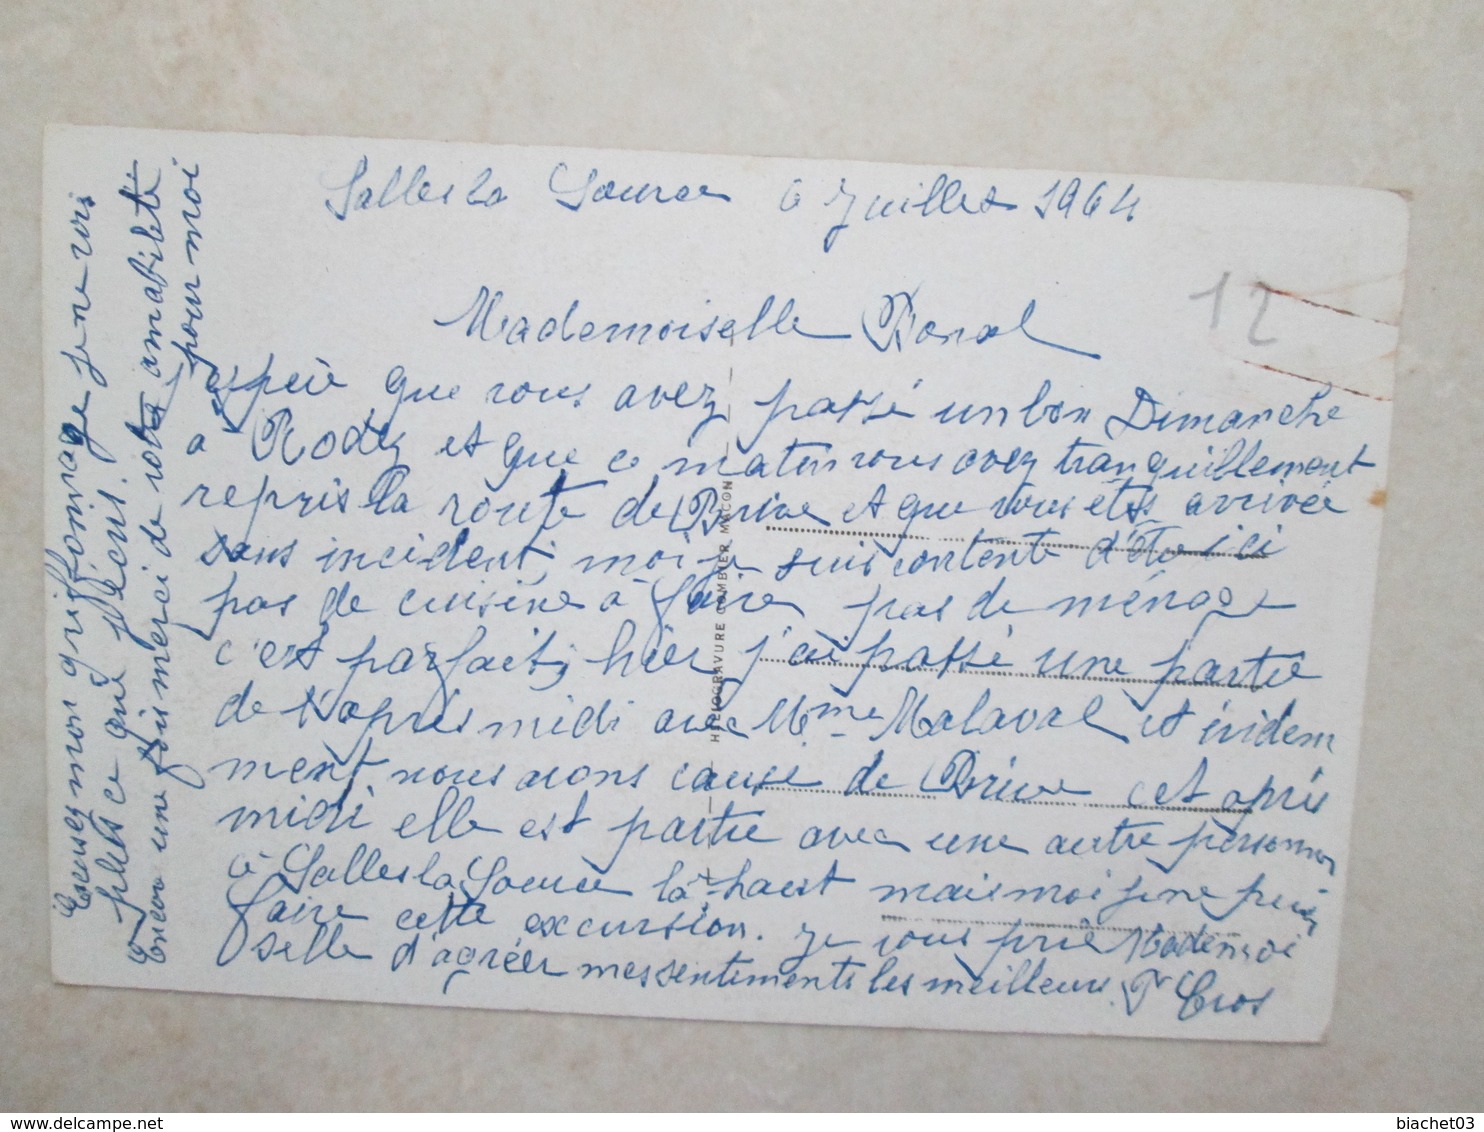 Salles la Source 6 Juillet 1964
12
Mademoiselle Bonal
j'espère que vous avez passé un bon Dimanche
a Rodez et que ce matin vous avez tranquillement
repris la route de Brive et que vous étes arrivée
sans incident, moi je suis contente d'être ici
pas de cuisine à faire, pas de ménage
c'est parfait, hier j'ai passé une partie
de l'après midi avec Mme Malaval et évidem
ment nous avons causé de Brive cet après
midi elle est partie avec une autre personne
à Salles la Source là-haut mais moi je ne puis
faire cette excursion. Je vous prie Mademoi
selle d'agréer mes sentiments les meilleurs. Cros
Excusez mon griffonnage je ne vois
plus ce que j'écris.
Encore une fois merci de votre amabilité
pour moi
HELIOGRAVURE COMBIER MACON
biachet03